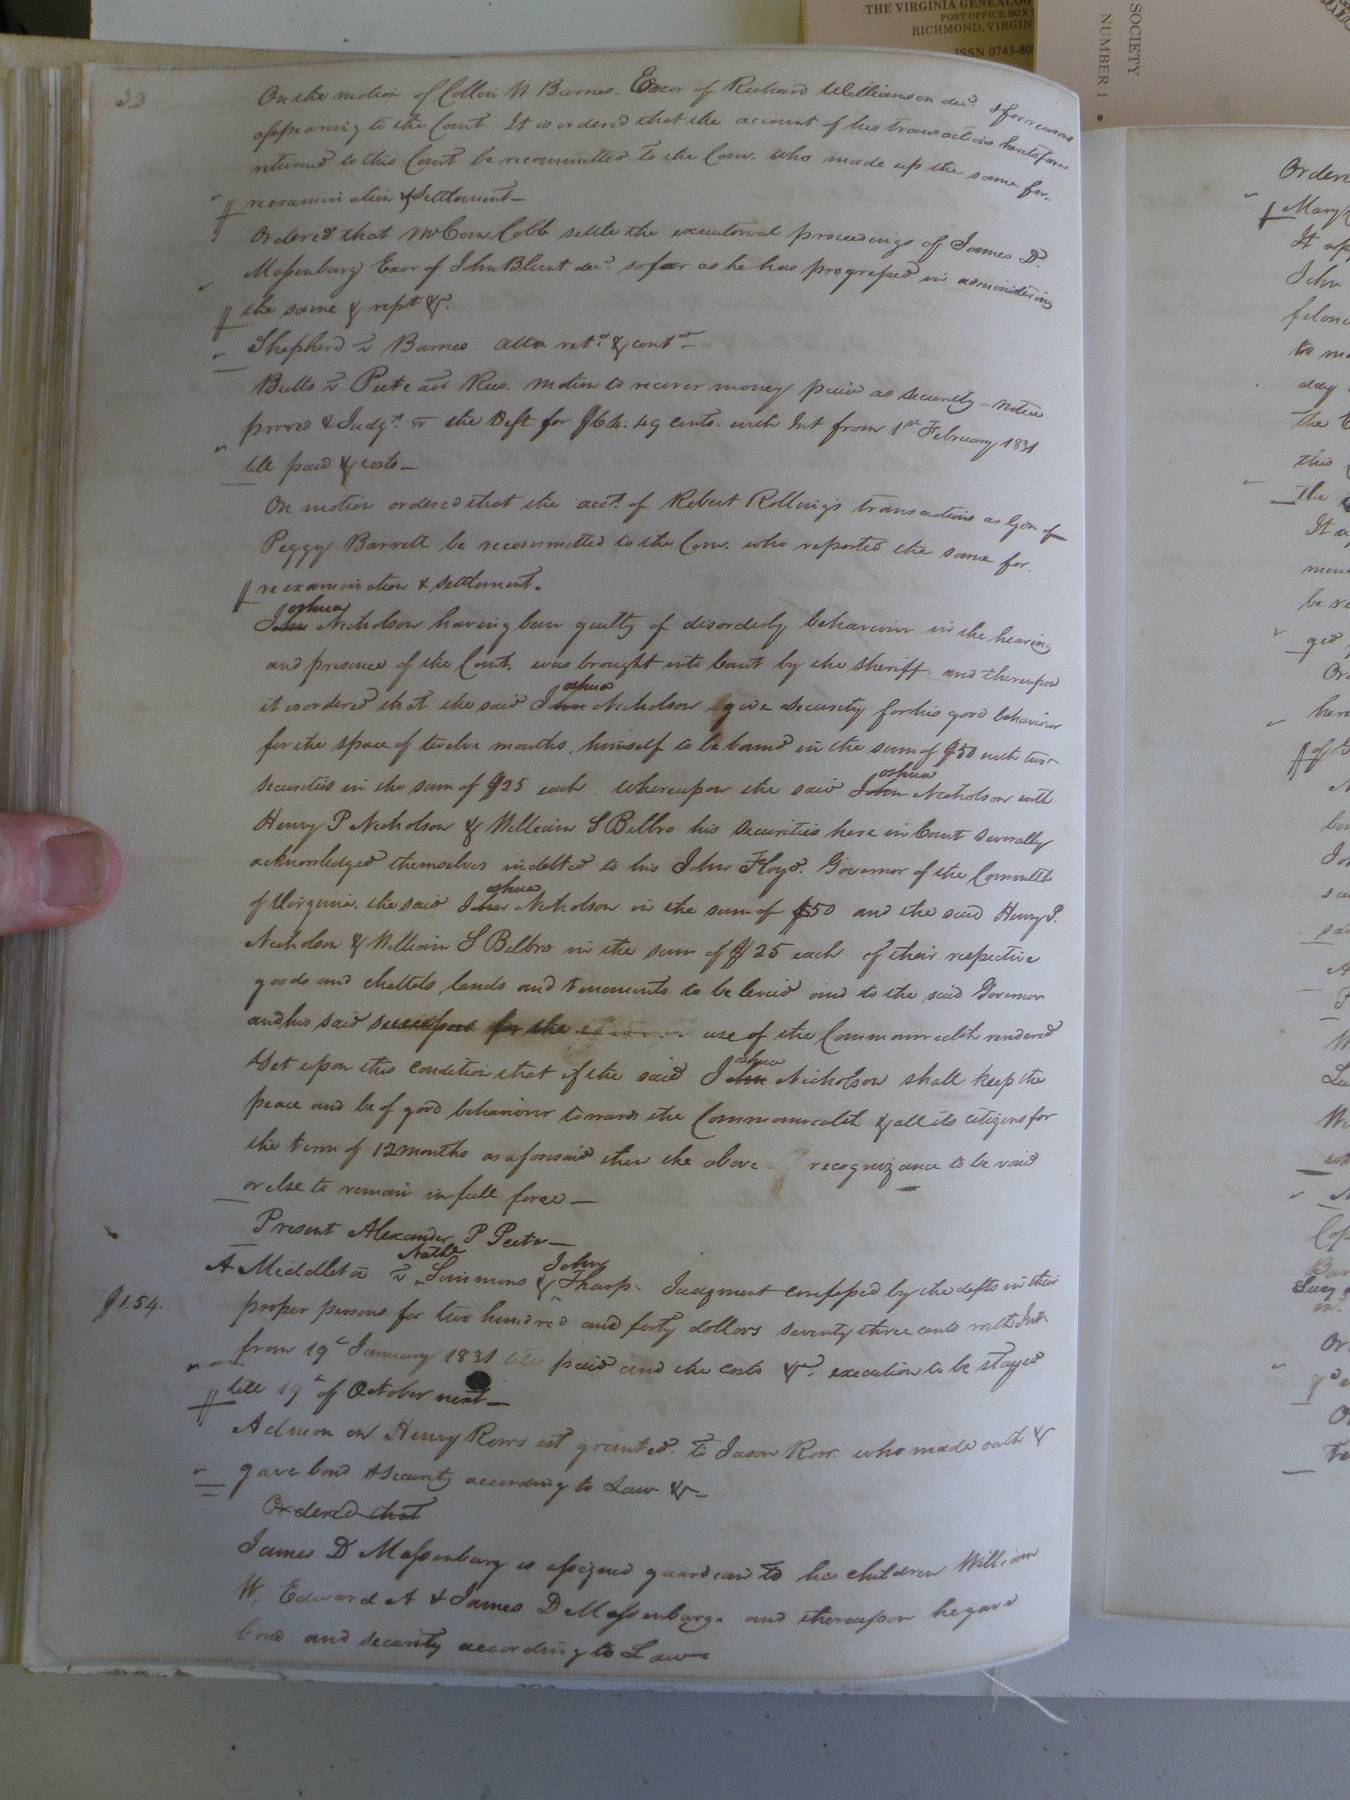 THE VIRGINIA GENEALOG
POST OFFICE BOX
RICHMOND, VIRGIN
ISSN 0743-809
SOCIETY
NUMBER 1
32
On the motion of Collin W Barnes Exor of Richard Williamson decd. & for reasons
appearing to the Court It is ordered that the account of his transactions heretofore
returned to this Court be recommitted to the Com. who made up the same for
reexamination & settlement—
Ordered that Mr Com. Cobb settle the executorial proceedings of James D.
Massenburg Exor of John Blunt decd. so far as he has progressed in administering
the same & rept &c.
Shepherd vs Barnes atta retd. & contd—
Butts vs Peete Motion to recover money paid as security—notice
proved & Judgt. vs the Deft for $64:49 cents with Int from 1st February 1831
till paid & costs—
On motion ordered that the acct. of Robert Rollings transactions as Gdn of
Peggy Barrett be recommitted to the Com. who reported the same for
reexamination & settlement.
John oshua Nicholson having been guilty of disorderly behaviour in the hearing
and presence of the Court, was brought into Court by the Sheriff and thereupon
it is ordered that the said John oshua Nicholson give security for his good behaviour
for the space of twelve months, himself to be bound in the sum of $50 with two
securities in the sum of $25 each whereupon the said John oshua Nicholson with
Henry P Nicholson & William S Bilbro his securities here in Court severally
acknowledged themselves indebted to his John Floyd. Governor of the Commlth
of Virginia, the said John oshua Nicholson in the sum of $50 and the said Henry P.
Nicholson & William S Bilbro in the sum of $25 each of their respective
goods and chattels, lands and tenements to be levied and to the said Governor
and his said successors for the use of the Commonwealth rendered
Yet upon this condition that if the said John oshua Nicholson shall keep the
peace and be of good behaviour towards the Commonwealth & all its citizens for
the term of 12 months as aforesaid then the above recognizance to be void
or else to remain in full force—
Present Alexander P Peete—
A Middleton vs Nathl Simmons & John Tharp. Judgment confessed by the defts in their
$1.54.
proper persons for two hundred and forty dollars seventy three cents with Int
from 19th January 1831 till paid and the costs &c. execution to be stayed
till 19th of October next—
Admon on Henry Rows est granted to Jason Row who made oath &
gave bond & security according to Law &c—
Ordered that
James D Massenburg is assigned guardian to his children William
W. Edward A & James D Massenburg and thereupon he gave
bond and security according to Law—
Ordere
Mary
It ap
John
felon
to m
day
the
this
the
It a
be re
Or
of
Jo
A
W
Or
O